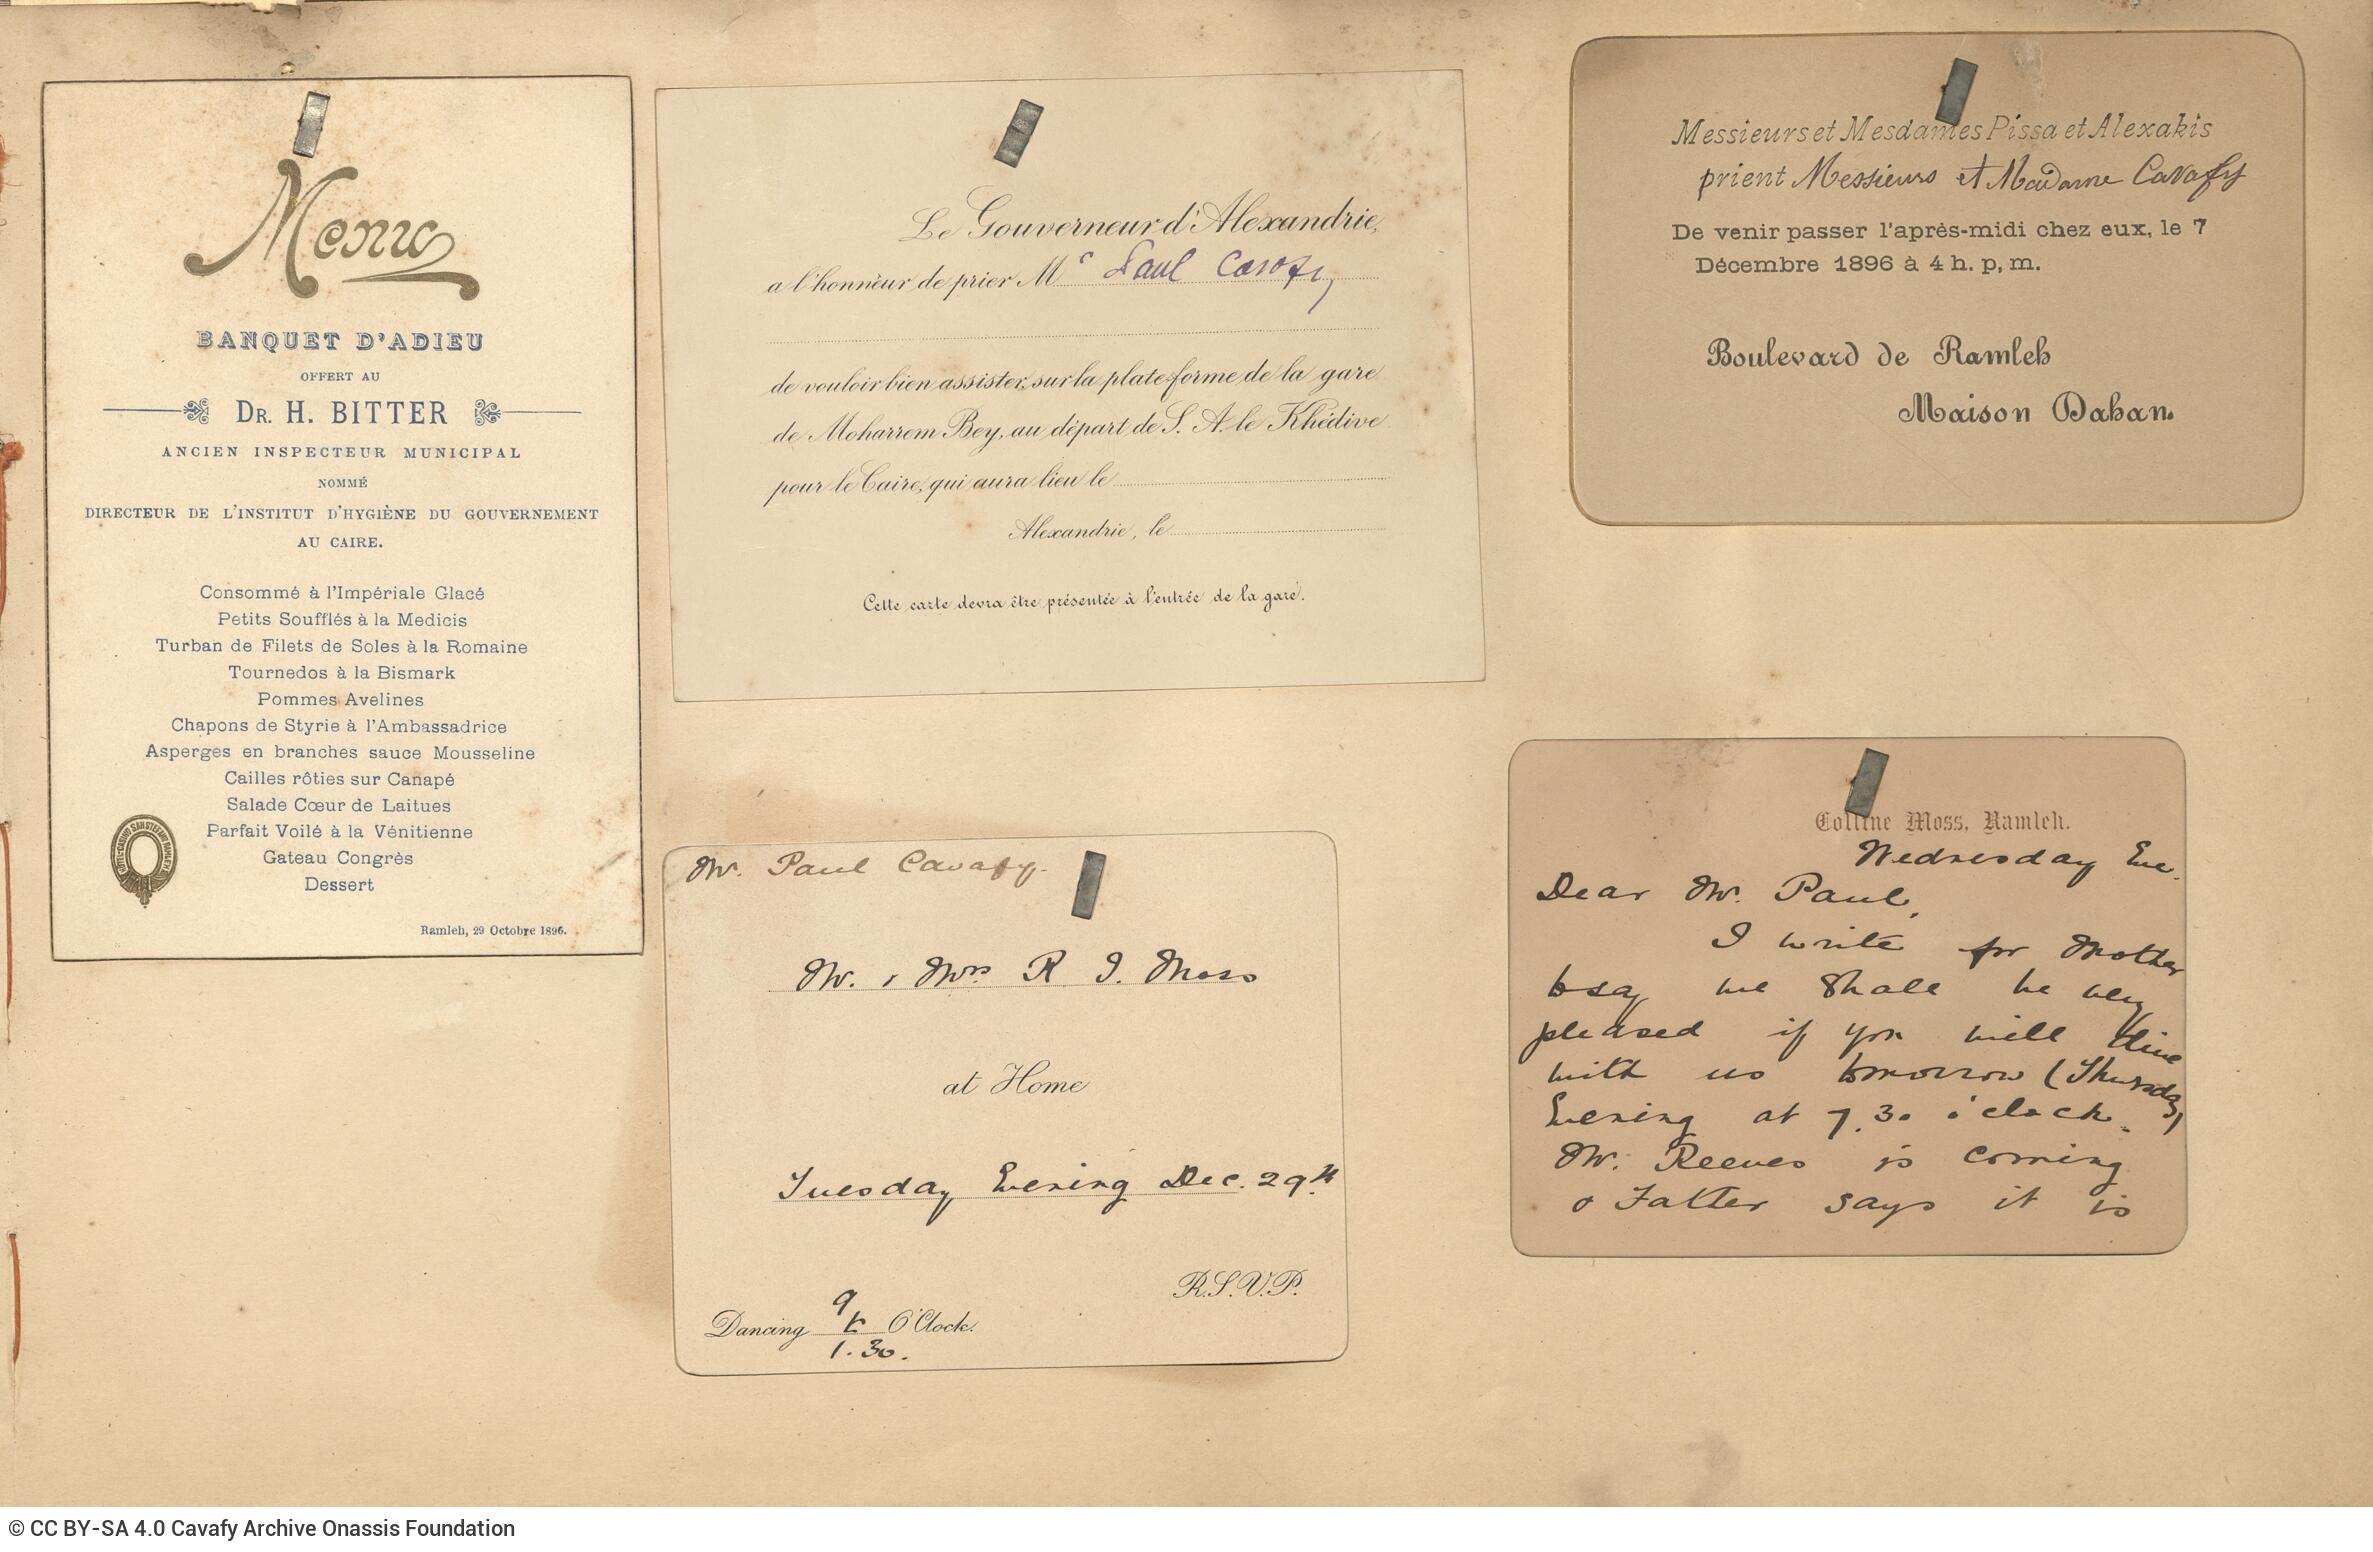 Menu
BANQUET D'ADIEU
OFFERT AU
DR. H. BITTER
ANCIEN INSPECTEUR MUNICIPAL
NOMMÉ
DIRECTEUR DE L'INSTITUT D'HYGIÈNE DU GOUVERNEMENT
AU CAIRE.
Consommé à l'Impériale Glacé
Petits Soufflés à la Medicis
Turban de Filets de Soles à la Romaine
Tournedos à la Bismark
Pommes Avelines
Chapons de Styrie à l'Ambassadrice
Asperges en branches sauce Mousseline
Cailles rôties sur Canapé
Salade Cœur de Laitues
Parfait Voilé à la Vénitienne
Gateau Congrès
Dessert
Ramleh, 29 Octobre 1896.
Le Gouverneur d'Alexandrie,
a l'honneur de prier Mr Paul Cavafy
de vouloir bien assister, sur la plate-forme de la gare
de Moharrem Bey, au départ de S. A. le Khédive
pour le Caire, qui aura lieu le
Alexandrie, le
Cette carte devra être présentée à l'entrée de la gare.
Messieurs et Mesdames Pissa et Alexakis
prient Messieurs et Madame Cavafy
De venir passer l'après-midi chez eux, le 7
Décembre 1896 à 4 h. p, m.
Boulevard de Ramleh
Maison Dahan.
Mr. Paul Cavafy.
Mr. & Mrs R. I. Moss
at Home
Tuesday Evening Dec. 29th
R.S.V.P.
9
Dancing to O'Clock.
1.30.
Colline Moss, Ramleh.
Wednesday Eve.
Dear Mr. Paul,
I write for Mother
to say we shall be very
pleased if you will dine
with us tomorrow (Thursday)
Evening at 7.30 o'clock.
Mr. Reeves is coming
& Father says it is
© CC BY-SA 4.0 Cavafy Archive Onassis Foundation